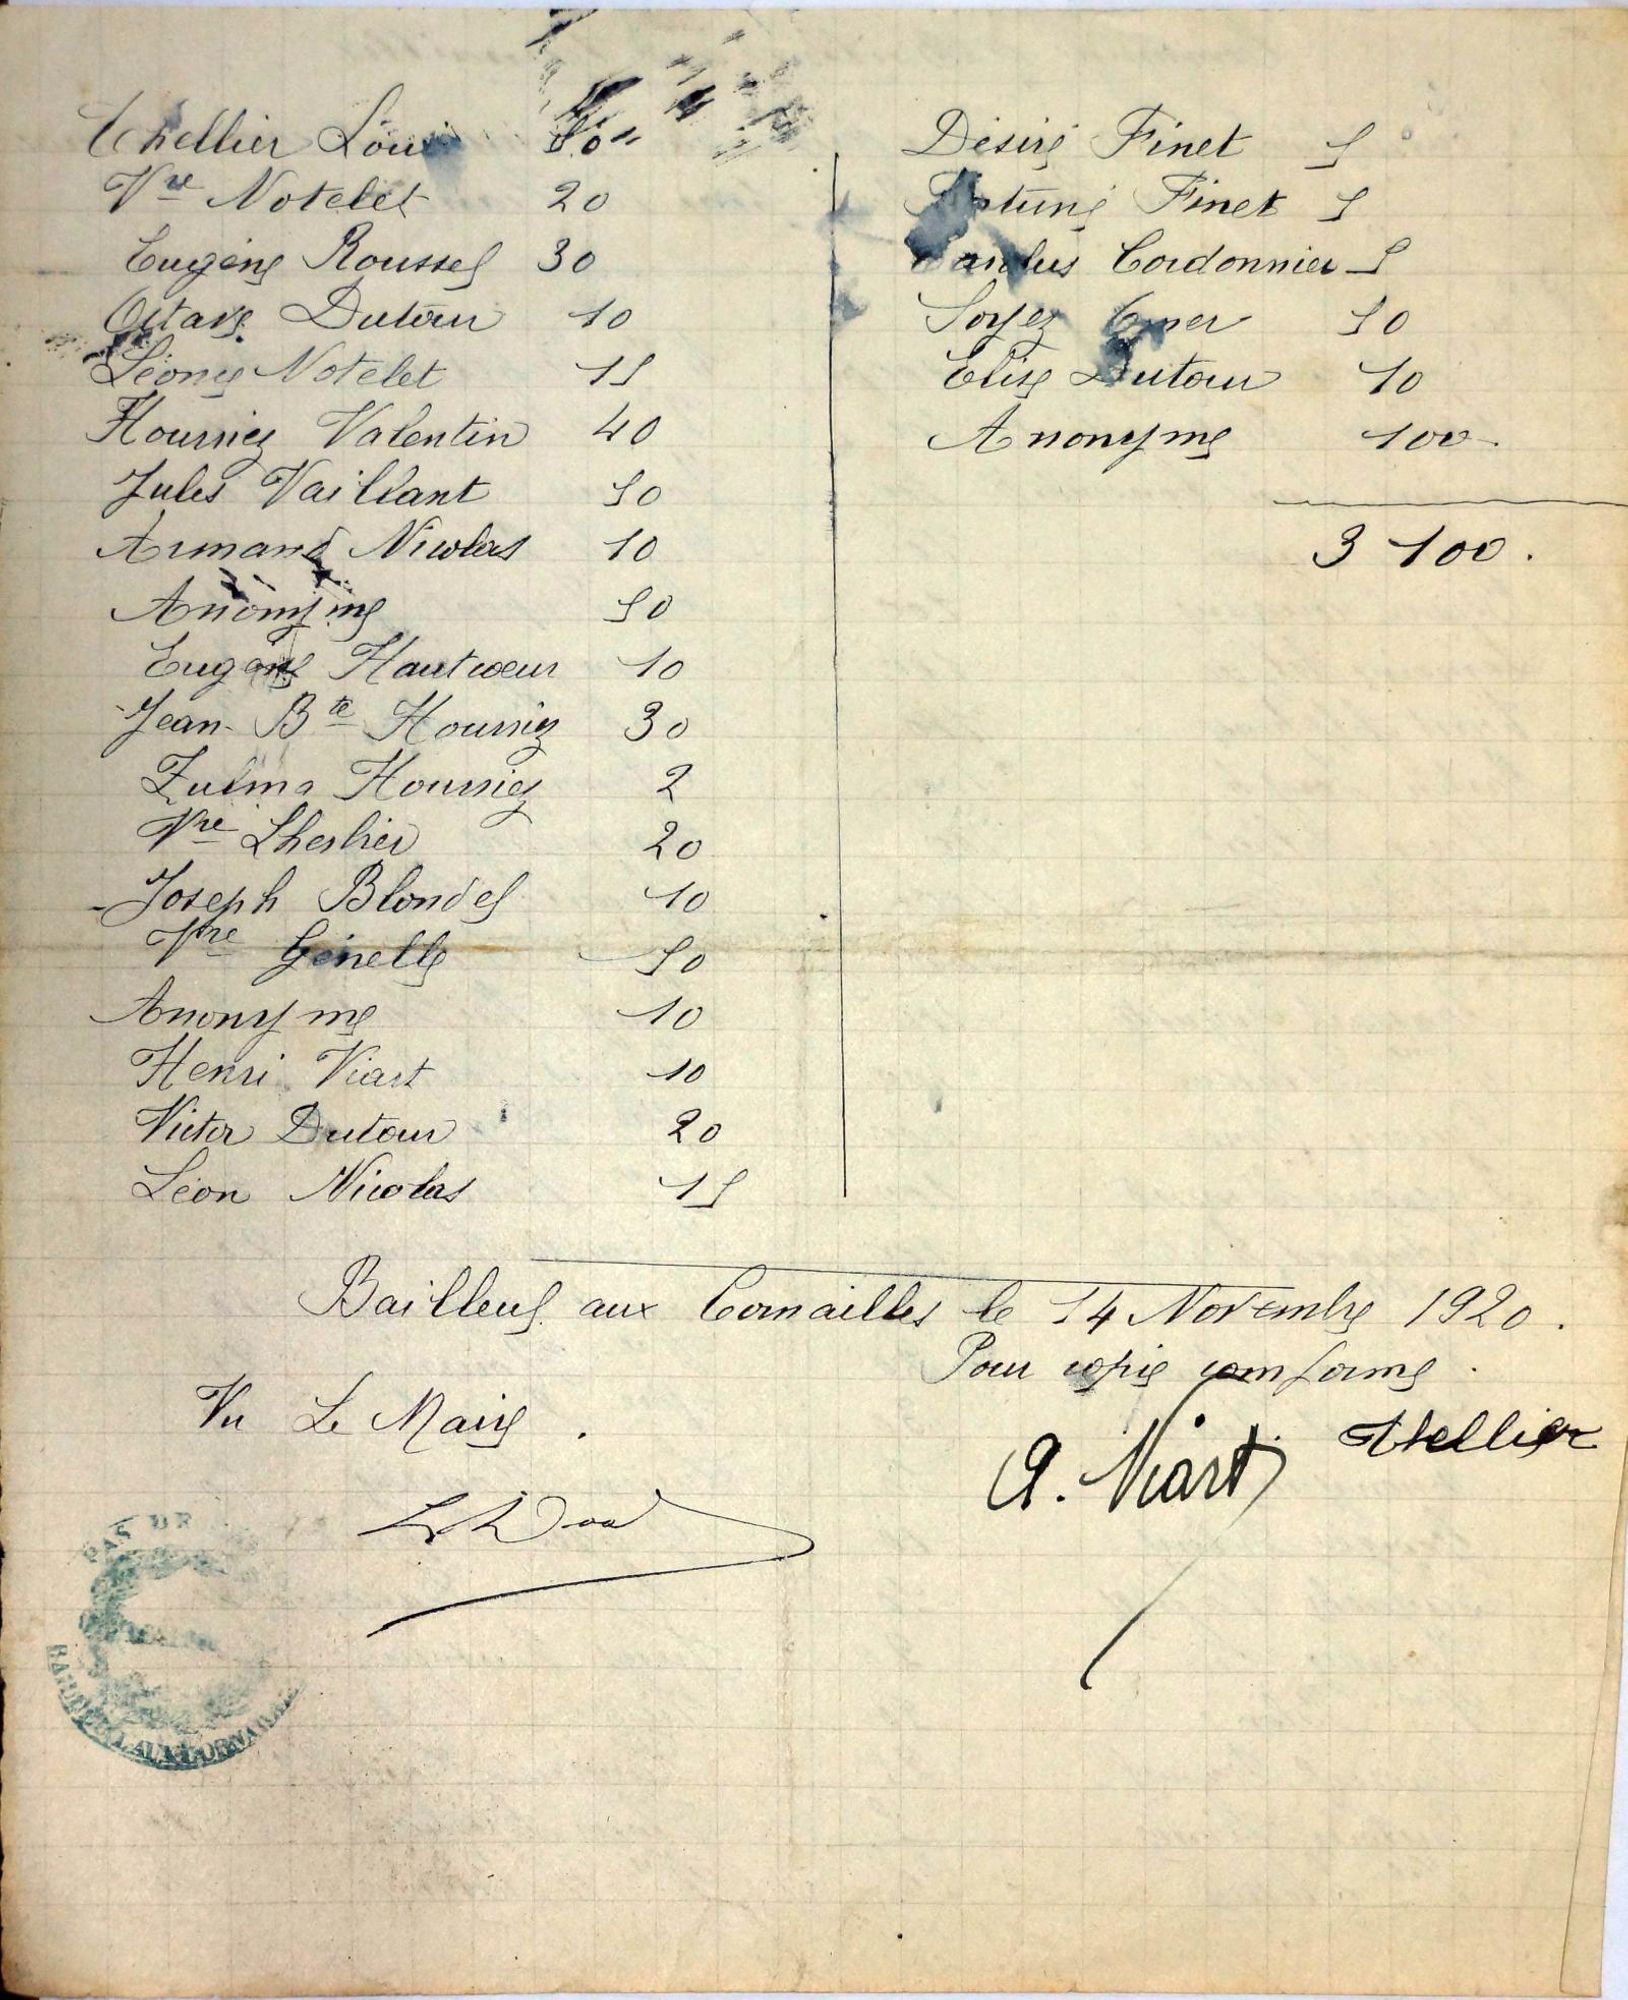 Thellier Louis 50 "
Vve Notelet 20
Eugène Roussel 30
Octave Dutour 10
Léonie Notelet 15
Hourriez Valentin 40
Jules Vaillant 50
Armand Nicolas 10
Anonyme 50
Eugène Hautcoeur 10
Jean-Bte Hourriez 30
Zulma Hourriez 2
Vve Lherbier 20
Joseph Blondel 10
Vve Génelle 50
Anonyme 10
Henri Viart 10
Victor Dutour 20
Léon Nicolas 15
Désiré Finet 5
Finet 5
Cordonnier 5
Soyez Omer 50
Elise Dutour 10
Anonyme 100
3 100.
Bailleul aux Cornailles le 14 Novembre 1920.
Pour copie conforme.
Vu Le Maire.
A. Viart Thellier
PAS DE
BAILLEUL AUX CORNAILLES